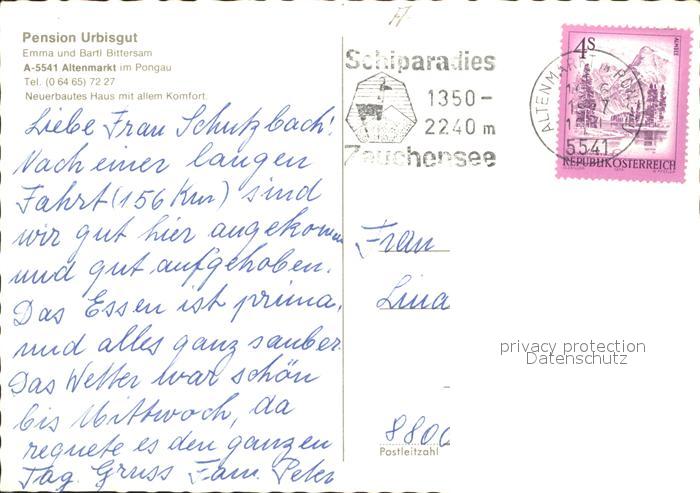 Pension Urbisgut
Emma und Bartl Bittersam
A-5541 Altenmarkt im Pongau
Tel. (0 64 65) 72 27
Neuerbautes Haus mit allem Komfort
Liebe Frau Schutzbach!
Nach einer langen
Fahrt (156 Km) sind
wir gut hier angekommen
und gut aufgehoben.
Das Essen ist prima,
und alles ganz sauber.
Das Wetter war schön
bis Mittwoch, da
regnete es den ganzen
Tag. Gruss Fam. Peter
Schiparadies
1350-
2240 m
Zauchensee
ALTENMARKT IM PON
5541
4S
ALMSEE
REPUBLIK ÖSTERREICH
Frau
Lina
privacy protection
Datenschutz
880
Postleitzahl